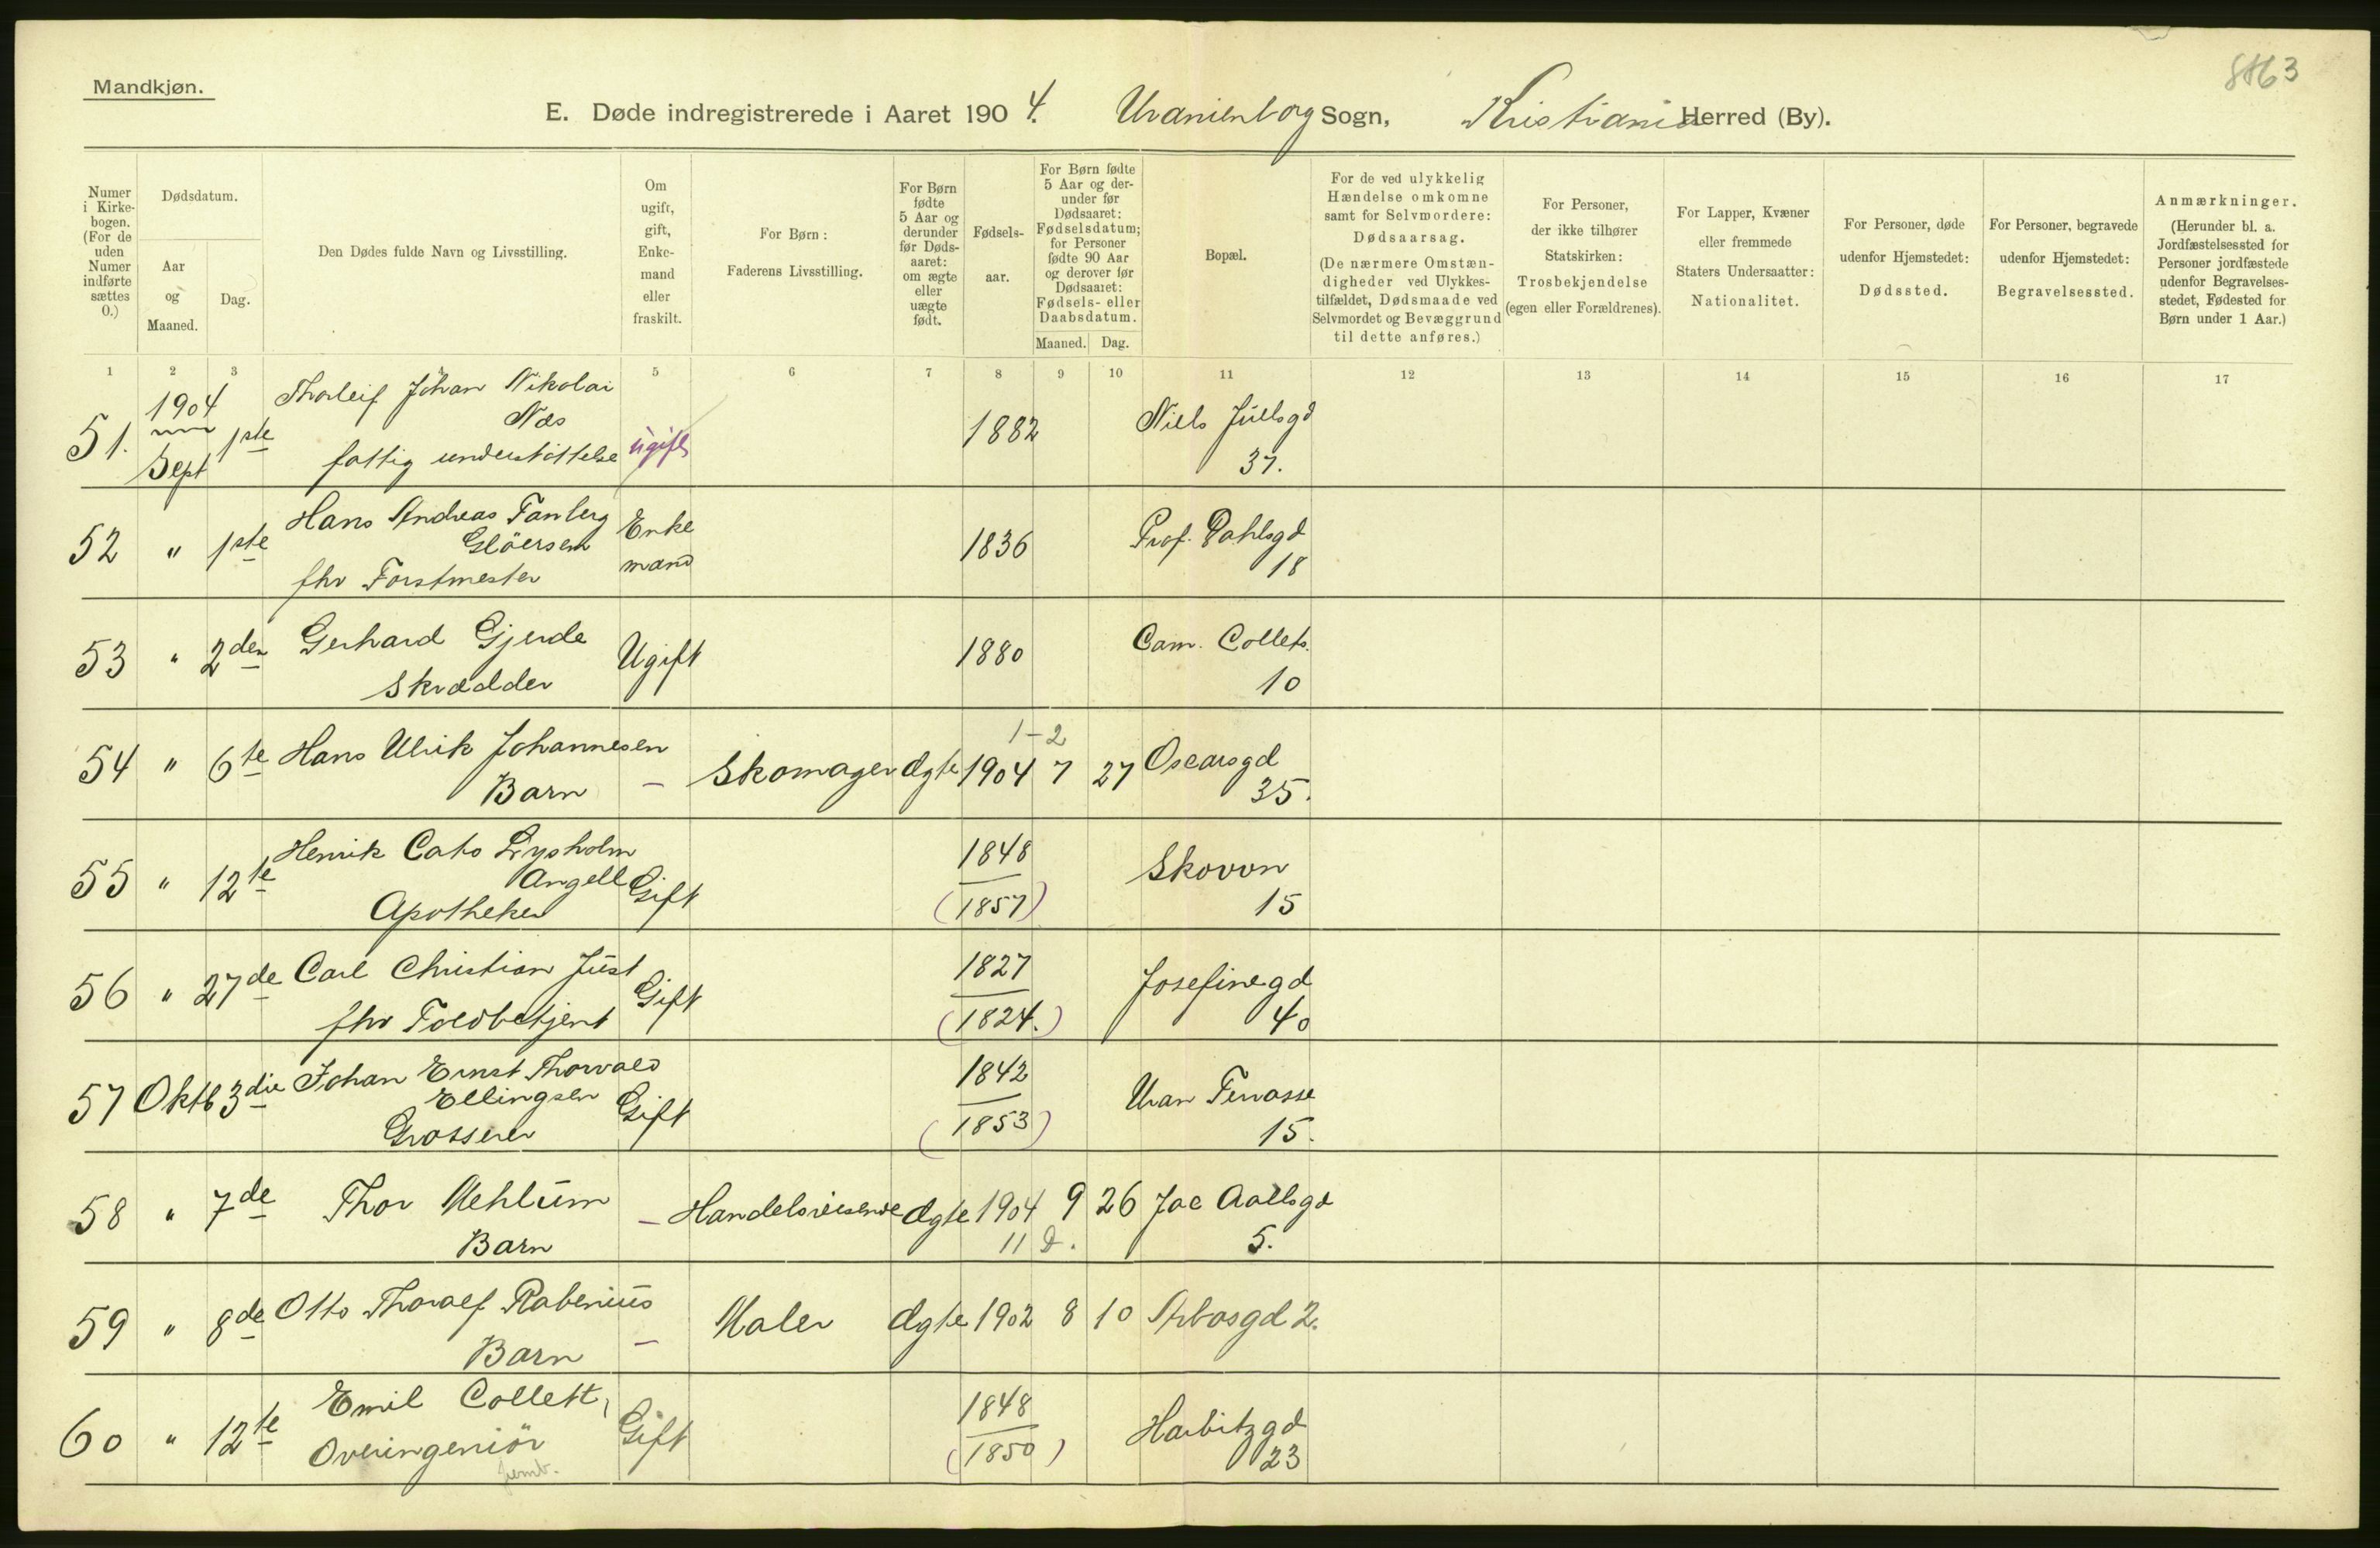 Mandkjøn.
E. Døde indregistrerede i Aaret 1904. Uranienborg Sogn, Kristiania Herred (By).
Numer i Kirke-bogen. (For de uden Numer indførte sættes 0.)
Dødsdatum.
Aar og Maaned.
Dag.
Den Dødes fulde Navn og Livsstilling.
Om ugift, gift, Enke-mand eller fraskilt.
For Børn: Faderens Livsstilling.
For Børn fødte 5 Aar og derunder før Døds-aaret: om ægte eller uægte født.
Fødsels-aar.
For Børn fødte 5 Aar og der-under før Dødsaaret: Fødselsdatum; for Personer fødte 90 Aar og derover før Dødsaaret: Fødsels- eller Daabsdatum.
Maaned. Dag.
Bopæl.
For de ved ulykkelig Hændelse omkomne samt for Selvmordere: Dødsaarsag. (De nærmere Omstæn-digheder ved Ulykkes-tilfældet, Dødsmaade ved Selvmordet og Bevæggrund til dette anføres.)
For Personer, der ikke tilhører Statskirken: Trosbekjendelse (egen eller Forældrenes).
For Lapper, Kvæner eller fremmede Staters Undersaatter: Nationalitet.
For Personer, døde udenfor Hjemstedet: Dødssted.
For Personer, begravede udenfor Hjemstedet: Begravelsessted.
Anmærkninger. (Herunder bl. a. Jordfæstelsessted for Personer jordfæstede udenfor Begravelses-stedet, Fødested for Børn under 1 Aar.)
1 2 3 5 6 7 8 9 10 11 12 13 14 15 16 17
1904 Thorleif Johan Nikolai
51. Sept 1ste Næs ugift 1882 Niels Juelsgd
fattig understöttelse 37.
Hans Andreas Fanberg Enke
52 " 1ste Glöersen 1836 Prof. Dahlsgd
fhv Forstmester mand 18
53 " 2den Gerhard Gjerde Ugift 1880 Cam. Collets.
Skrædder 10
1-2
54 " 6te Hans Ulrik Johannesen — Skomager ægte 1904 7 27 Oscarsgd
Barn 35.
Henrik Cato Lysholm 1848
55 " 12te Angell Gift Skovvn
Apotheker (1857) 15
56 " 27de Carl Christian Just Gift 1827 Josefinegd
fhv Toldbetjent (1824.) 40
Johan Ernst Thorvald 1842
57 Oktb 3die Ellingsen Gift Uran Terrasse
Grosserer (1853) 15.
58 " 7de Thor Mehlum — Handelsreisende ægte 1904 9 26 Jac Aallsgd
Barn 11 d. 5.
59 " 8de Otto Thoralf Rabenius — Maler ægte 1902 8 10 Arbosgd 2.
Barn
Emil Collett, 1848
60 " 12te Overingeniör Gift (1850) Harbitzgd
jernb. 23